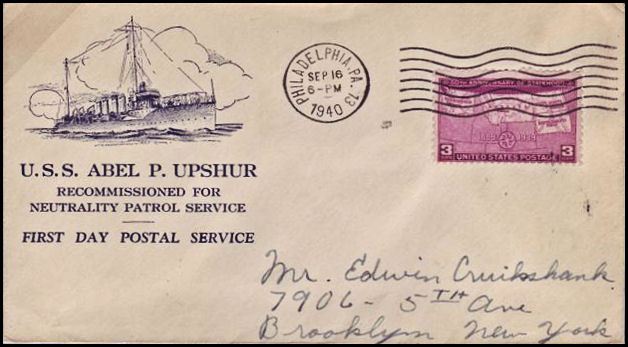 U.S.S. ABEL P. UPSHUR
RECOMMISSIONED FOR
NEUTRALITY PATROL SERVICE
FIRST DAY POSTAL SERVICE
PHILADELPHIA, PA. 13
SEP 16
6-PM
1940
50TH ANNIVERSARY OF STATEHOOD
1889 1939
3 UNITED STATES POSTAGE 3
Mr. Edwin Cruikshank
7906 - 5TH Ave
Brooklyn New York